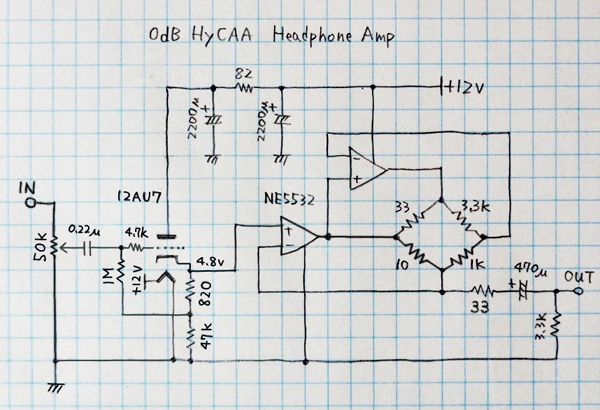 0dB HyCAA Headphone Amp
82
+12V
+
2200μ
+
2200μ
IN
12AU7
NE5532
-
+
33
3.3K
50K
0.22μ
4.7k
+
-
4.8v
10
1K
470μ
+
OUT
1M
+12V
820
33
47k
3.3k